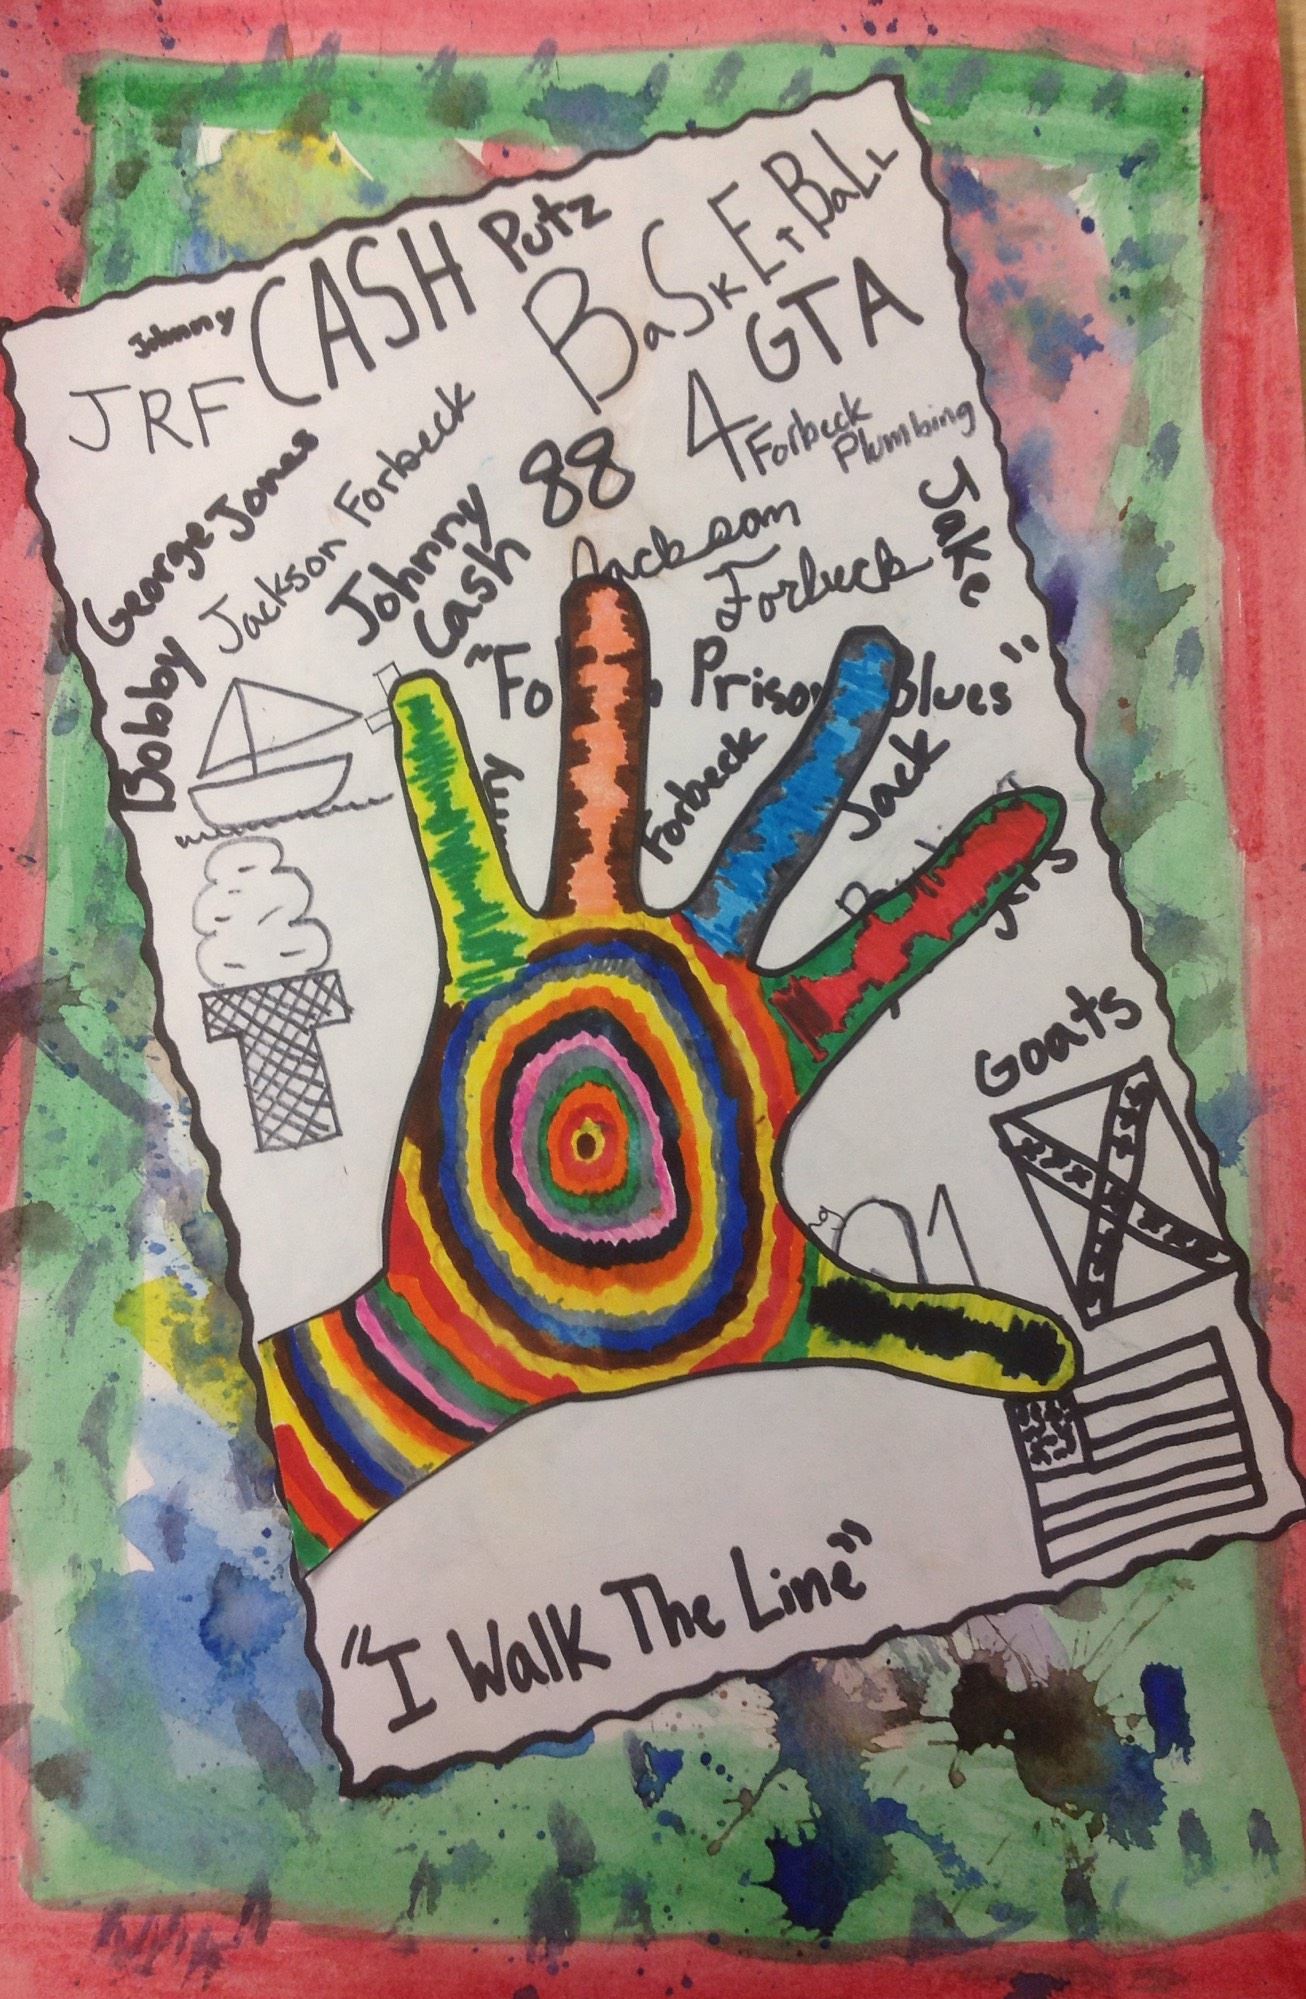 Johnny CASH Putz
BaSkEtBaLL
JRF
GTA
4
George Jones
Jackson Forbeck
Johnny
Cash
88
Forbeck
Plumbing
Jackson
Forbeck
Jake
Bobby
Prison Blues"
Forbeck
Jack
Goats
"I Walk The Line"